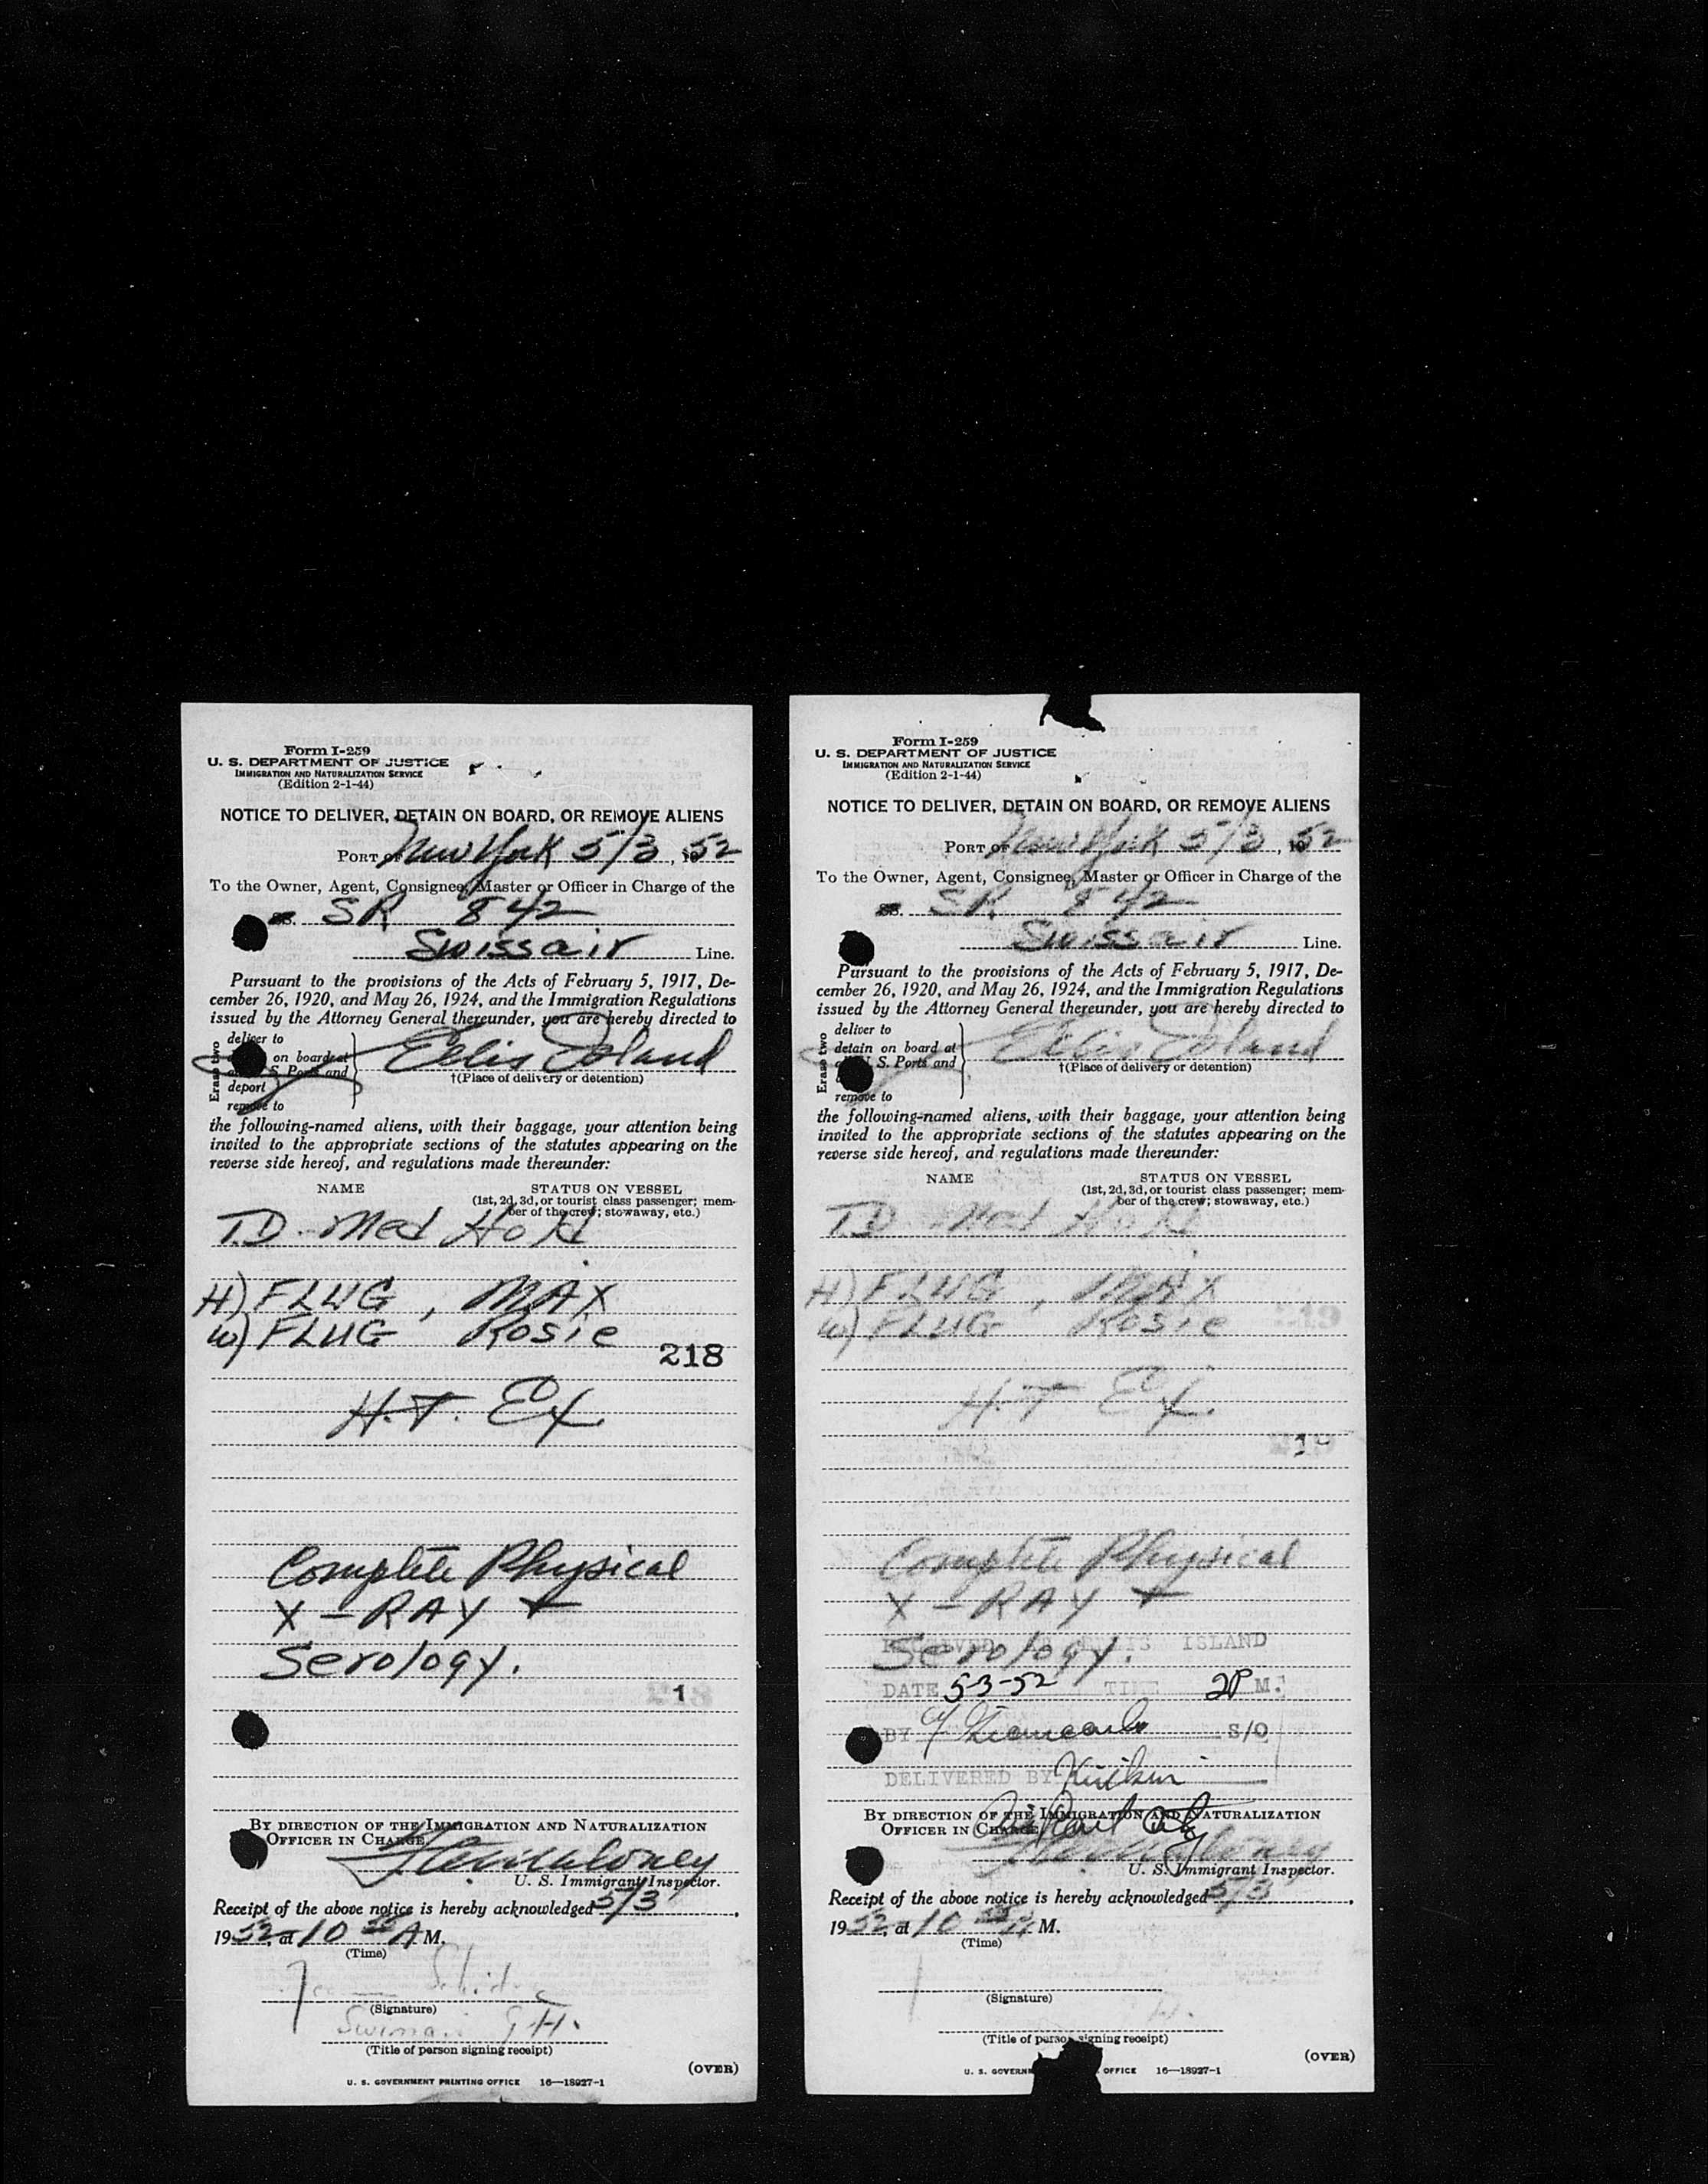 Form I-259
U. S. DEPARTMENT OF JUSTICE
IMMIGRATION AND NATURALIZATION SERVICE
(Edition 2-1-44)
NOTICE TO DELIVER, DETAIN ON BOARD, OR REMOVE ALIENS
PORT of New York 5/3, 1952
To the Owner, Agent, Consignee, Master or Officer in Charge of the
SS. SR 842
Swissair Line.
Pursuant to the provisions of the Acts of February 5, 1917, De-
cember 26, 1920, and May 26, 1924, and the Immigration Regulations
issued by the Attorney General thereunder, you are hereby directed to
Erase two
deliver to
on board at
S. Ports and
deport
remove to
Ellis Island
†(Place of delivery or detention)
the following-named aliens, with their baggage, your attention being
invited to the appropriate sections of the statutes appearing on the
reverse side hereof, and regulations made thereunder:
NAME STATUS ON VESSEL
(1st, 2d, 3d, or tourist class passenger; mem-
ber of the crew; stowaway, etc.)
T.D. Med Hold
H) FLUG, MAX
W) FLUG Rosie
218
H.T. Ex.
Complete Physical
X-RAY +
Serology.
1
BY DIRECTION OF THE IMMIGRATION AND NATURALIZATION
OFFICER IN CHARGE.
U. S. Immigrant Inspector.
Receipt of the above notice is hereby acknowledged 5/3,
1952, at 10 55 A M.
(Time)
(Signature)
(Title of person signing receipt)
(OVER)
U. S. GOVERNMENT PRINTING OFFICE 16—18927-1
Form I-259
U. S. DEPARTMENT OF JUSTICE
IMMIGRATION AND NATURALIZATION SERVICE
(Edition 2-1-44)
NOTICE TO DELIVER, DETAIN ON BOARD, OR REMOVE ALIENS
PORT of New York 5/3, 1952
To the Owner, Agent, Consignee, Master or Officer in Charge of the
SS. SR 842
Swissair Line.
Pursuant to the provisions of the Acts of February 5, 1917, De-
cember 26, 1920, and May 26, 1924, and the Immigration Regulations
issued by the Attorney General thereunder, you are hereby directed to
Erase two
deliver to
detain on board at
S. Ports and
remove to
Ellis Island
†(Place of delivery or detention)
the following-named aliens, with their baggage, your attention being
invited to the appropriate sections of the statutes appearing on the
reverse side hereof, and regulations made thereunder:
NAME STATUS ON VESSEL
(1st, 2d, 3d, or tourist class passenger; mem-
ber of the crew; stowaway, etc.)
T.D. Med Hold
H) FLUG, MAX
W) FLUG Rosie
H.T. Ex.
1
Complete Physical
X-RAY +
Serology.
RECEIVED ELLIS ISLAND
DATE 5-3-52 TIME 2P M.
BY S/O
DELIVERED BY
BY DIRECTION OF THE IMMIGRATION AND NATURALIZATION
OFFICER IN CHARGE.
U. S. Immigrant Inspector.
Receipt of the above notice is hereby acknowledged 5/3,
1952, at 10 55 A M.
(Time)
(Signature)
(Title of person signing receipt)
(OVER)
U. S. GOVERNM OFFICE 16—18927-1